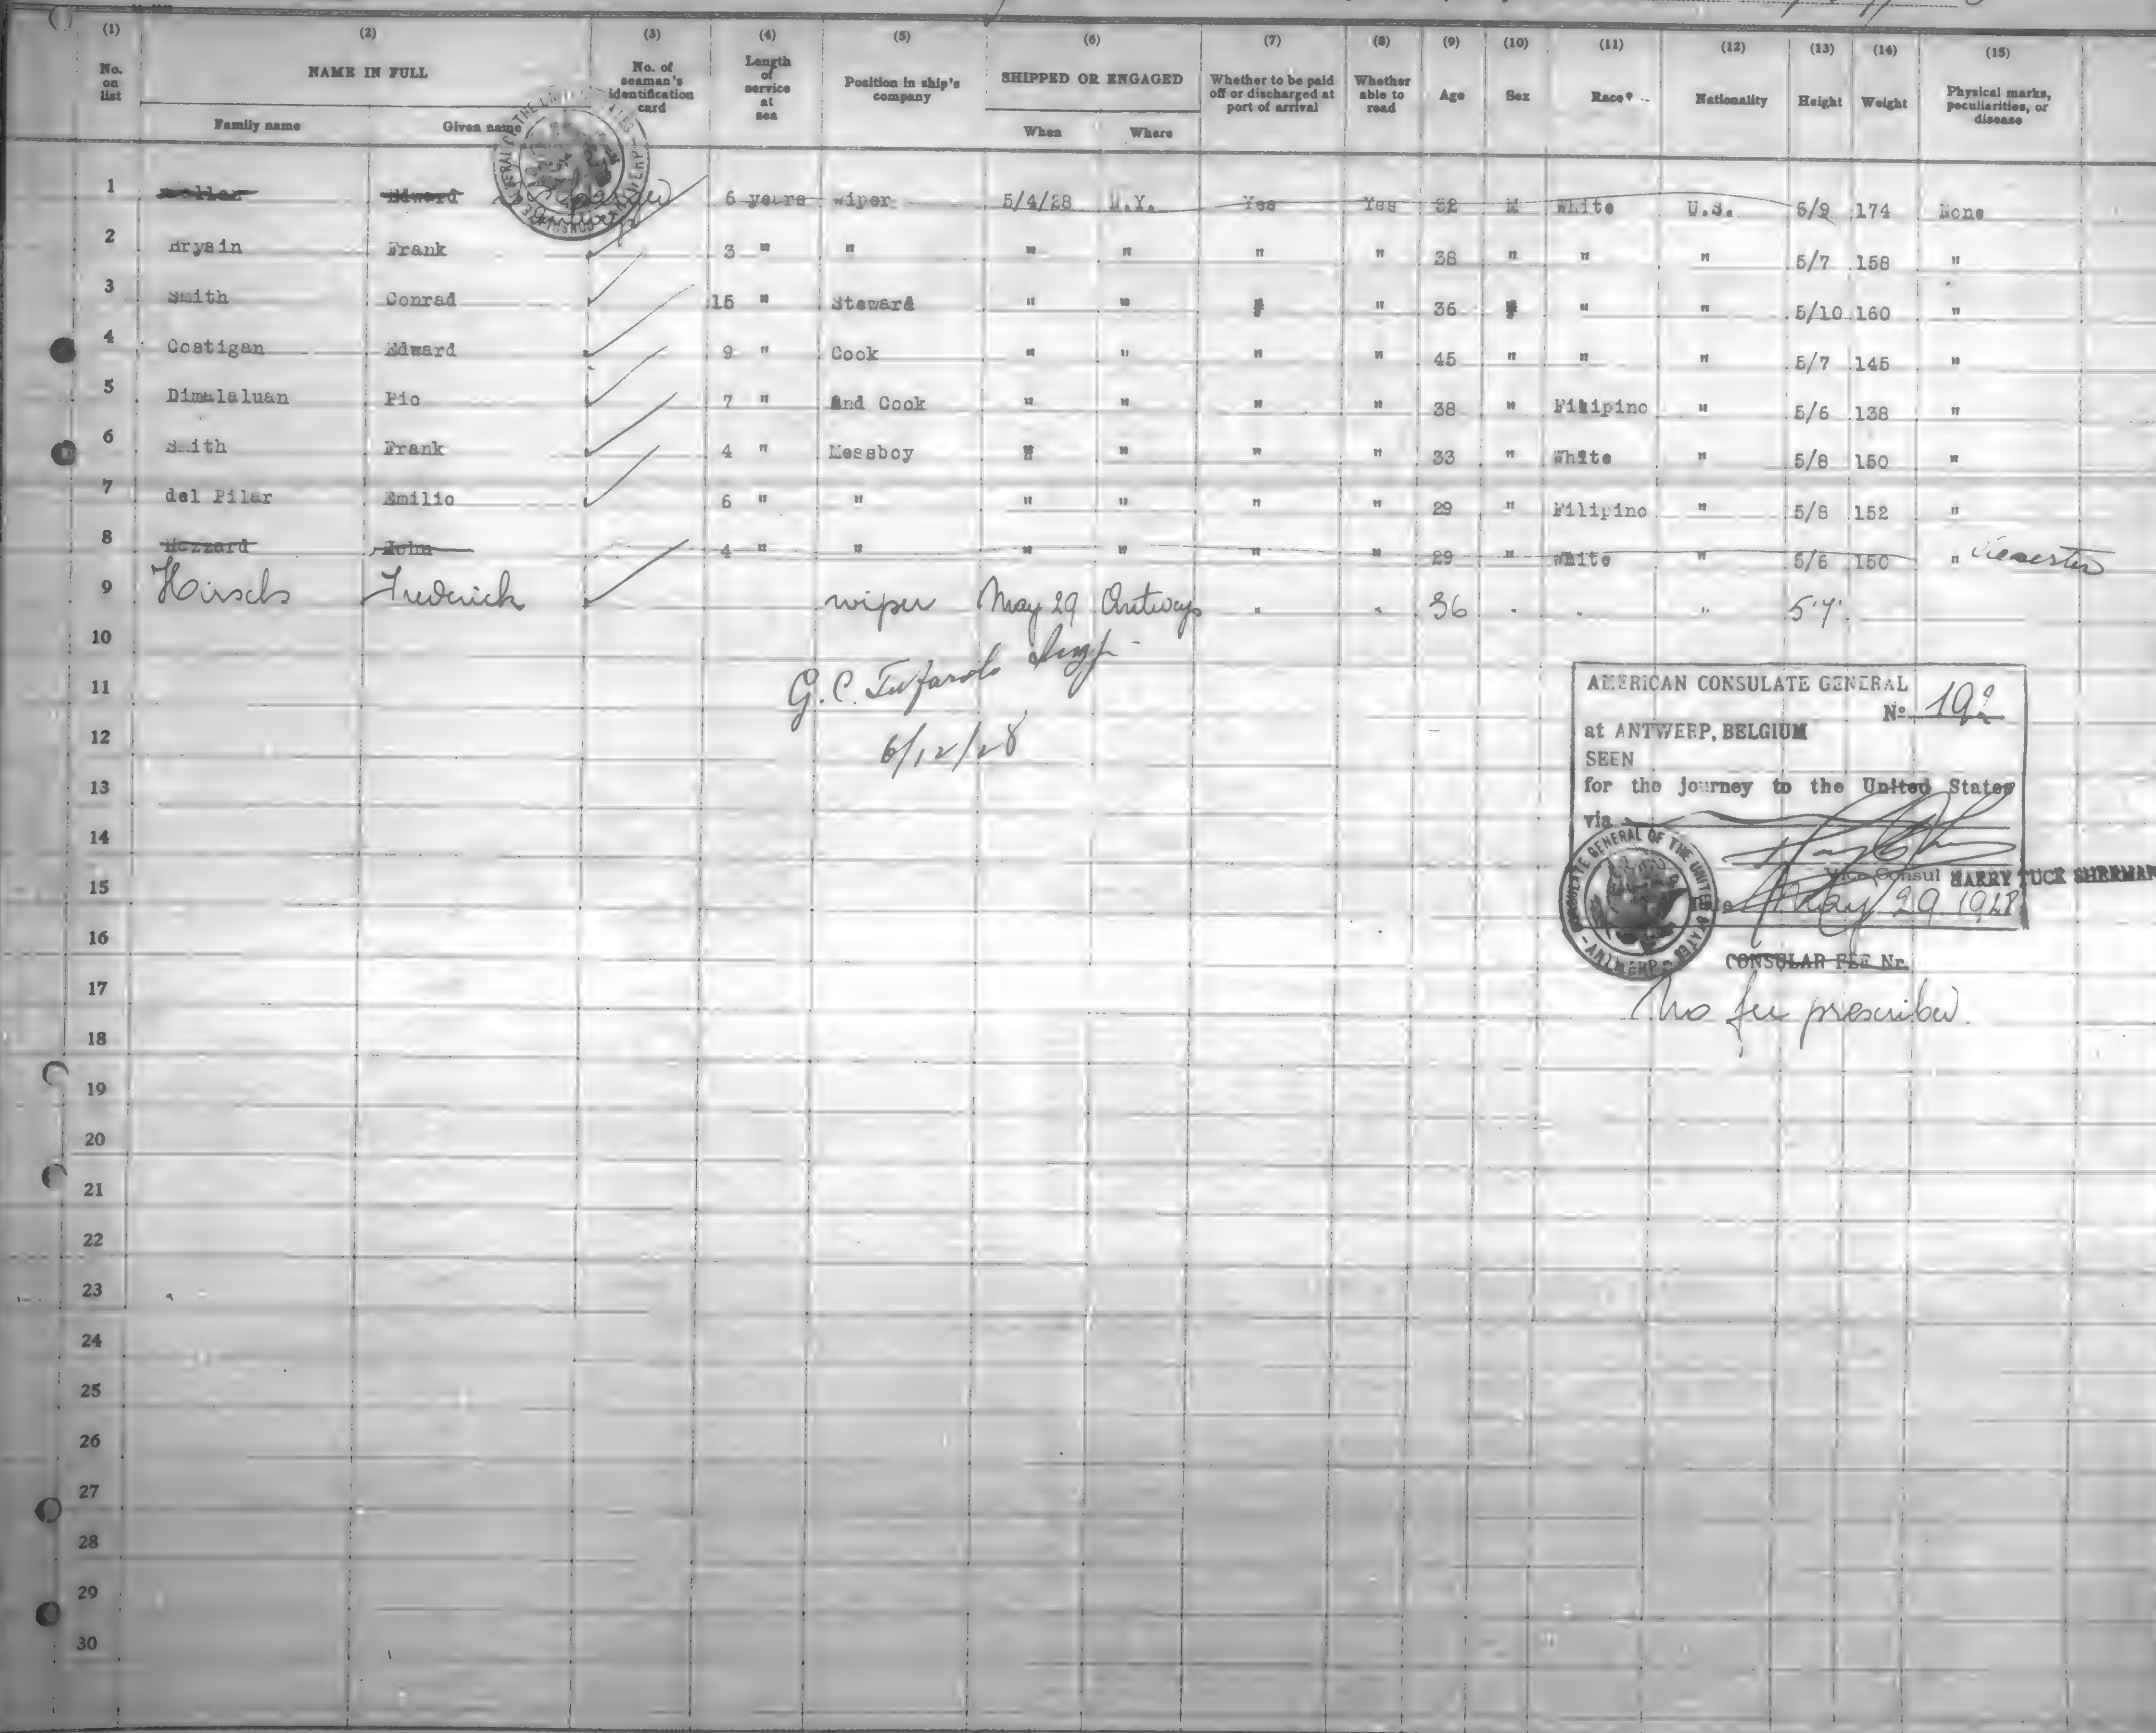 (1) (2) (3) (4) (5) (6) (7) (8) (9) (10) (11) (12) (13) (14) (15)
No. on list NAME IN FULL No. of seaman's identification card Length of service at sea Position in ship's company SHIPPED OR ENGAGED Whether to be paid off or discharged at port of arrival Whether able to read Age Sex Race Nationality Height Weight Physical marks, peculiarities, or disease
Family name Given name When Where
1 Edward 6 years wiper 5/4/28 N.Y. Yes Yes 32 M White U.S. 5/9 174 None
2 Brysin Frank 3 " " " " " " 38 " " " 5/7 158 "
3 Smith Conrad 15 " Steward " " " " 36 " " " 5/10 160 "
4 Costigan Edward 9 " Cook " " " " 45 " " " 5/7 145 "
5 Dimalaluan Pio 7 " 2nd Cook " " " " 38 " Filipino " 5/6 138 "
6 Smith Frank 4 " Messboy " " " " 33 " White " 5/8 150 "
7 del Pilar Emilio 6 " " " " " " 29 " Filipino " 5/8 152 "
8 Hazzard John 4 " " " " " " 29 " White " 5/6 150 "
9 Hirsch Frederick wiper May 29 Antwerp " " 36 " " " 5'7"
10
11 G. C.
12 6/12/28
13
14
15
16
17
18
19
20
21
22
23
24
25
26
27
28
29
30
AMERICAN CONSULATE GENERAL
No
at ANTWERP, BELGIUM
SEEN
for the journey to the United States
via
Vice Consul HARRY TUCK SHERMAN
May 29 1928
CONSULATE GENERAL OF THE UNITED STATES - ANTWERP
CONSULAR FEE Nr.
No fee prescribed.